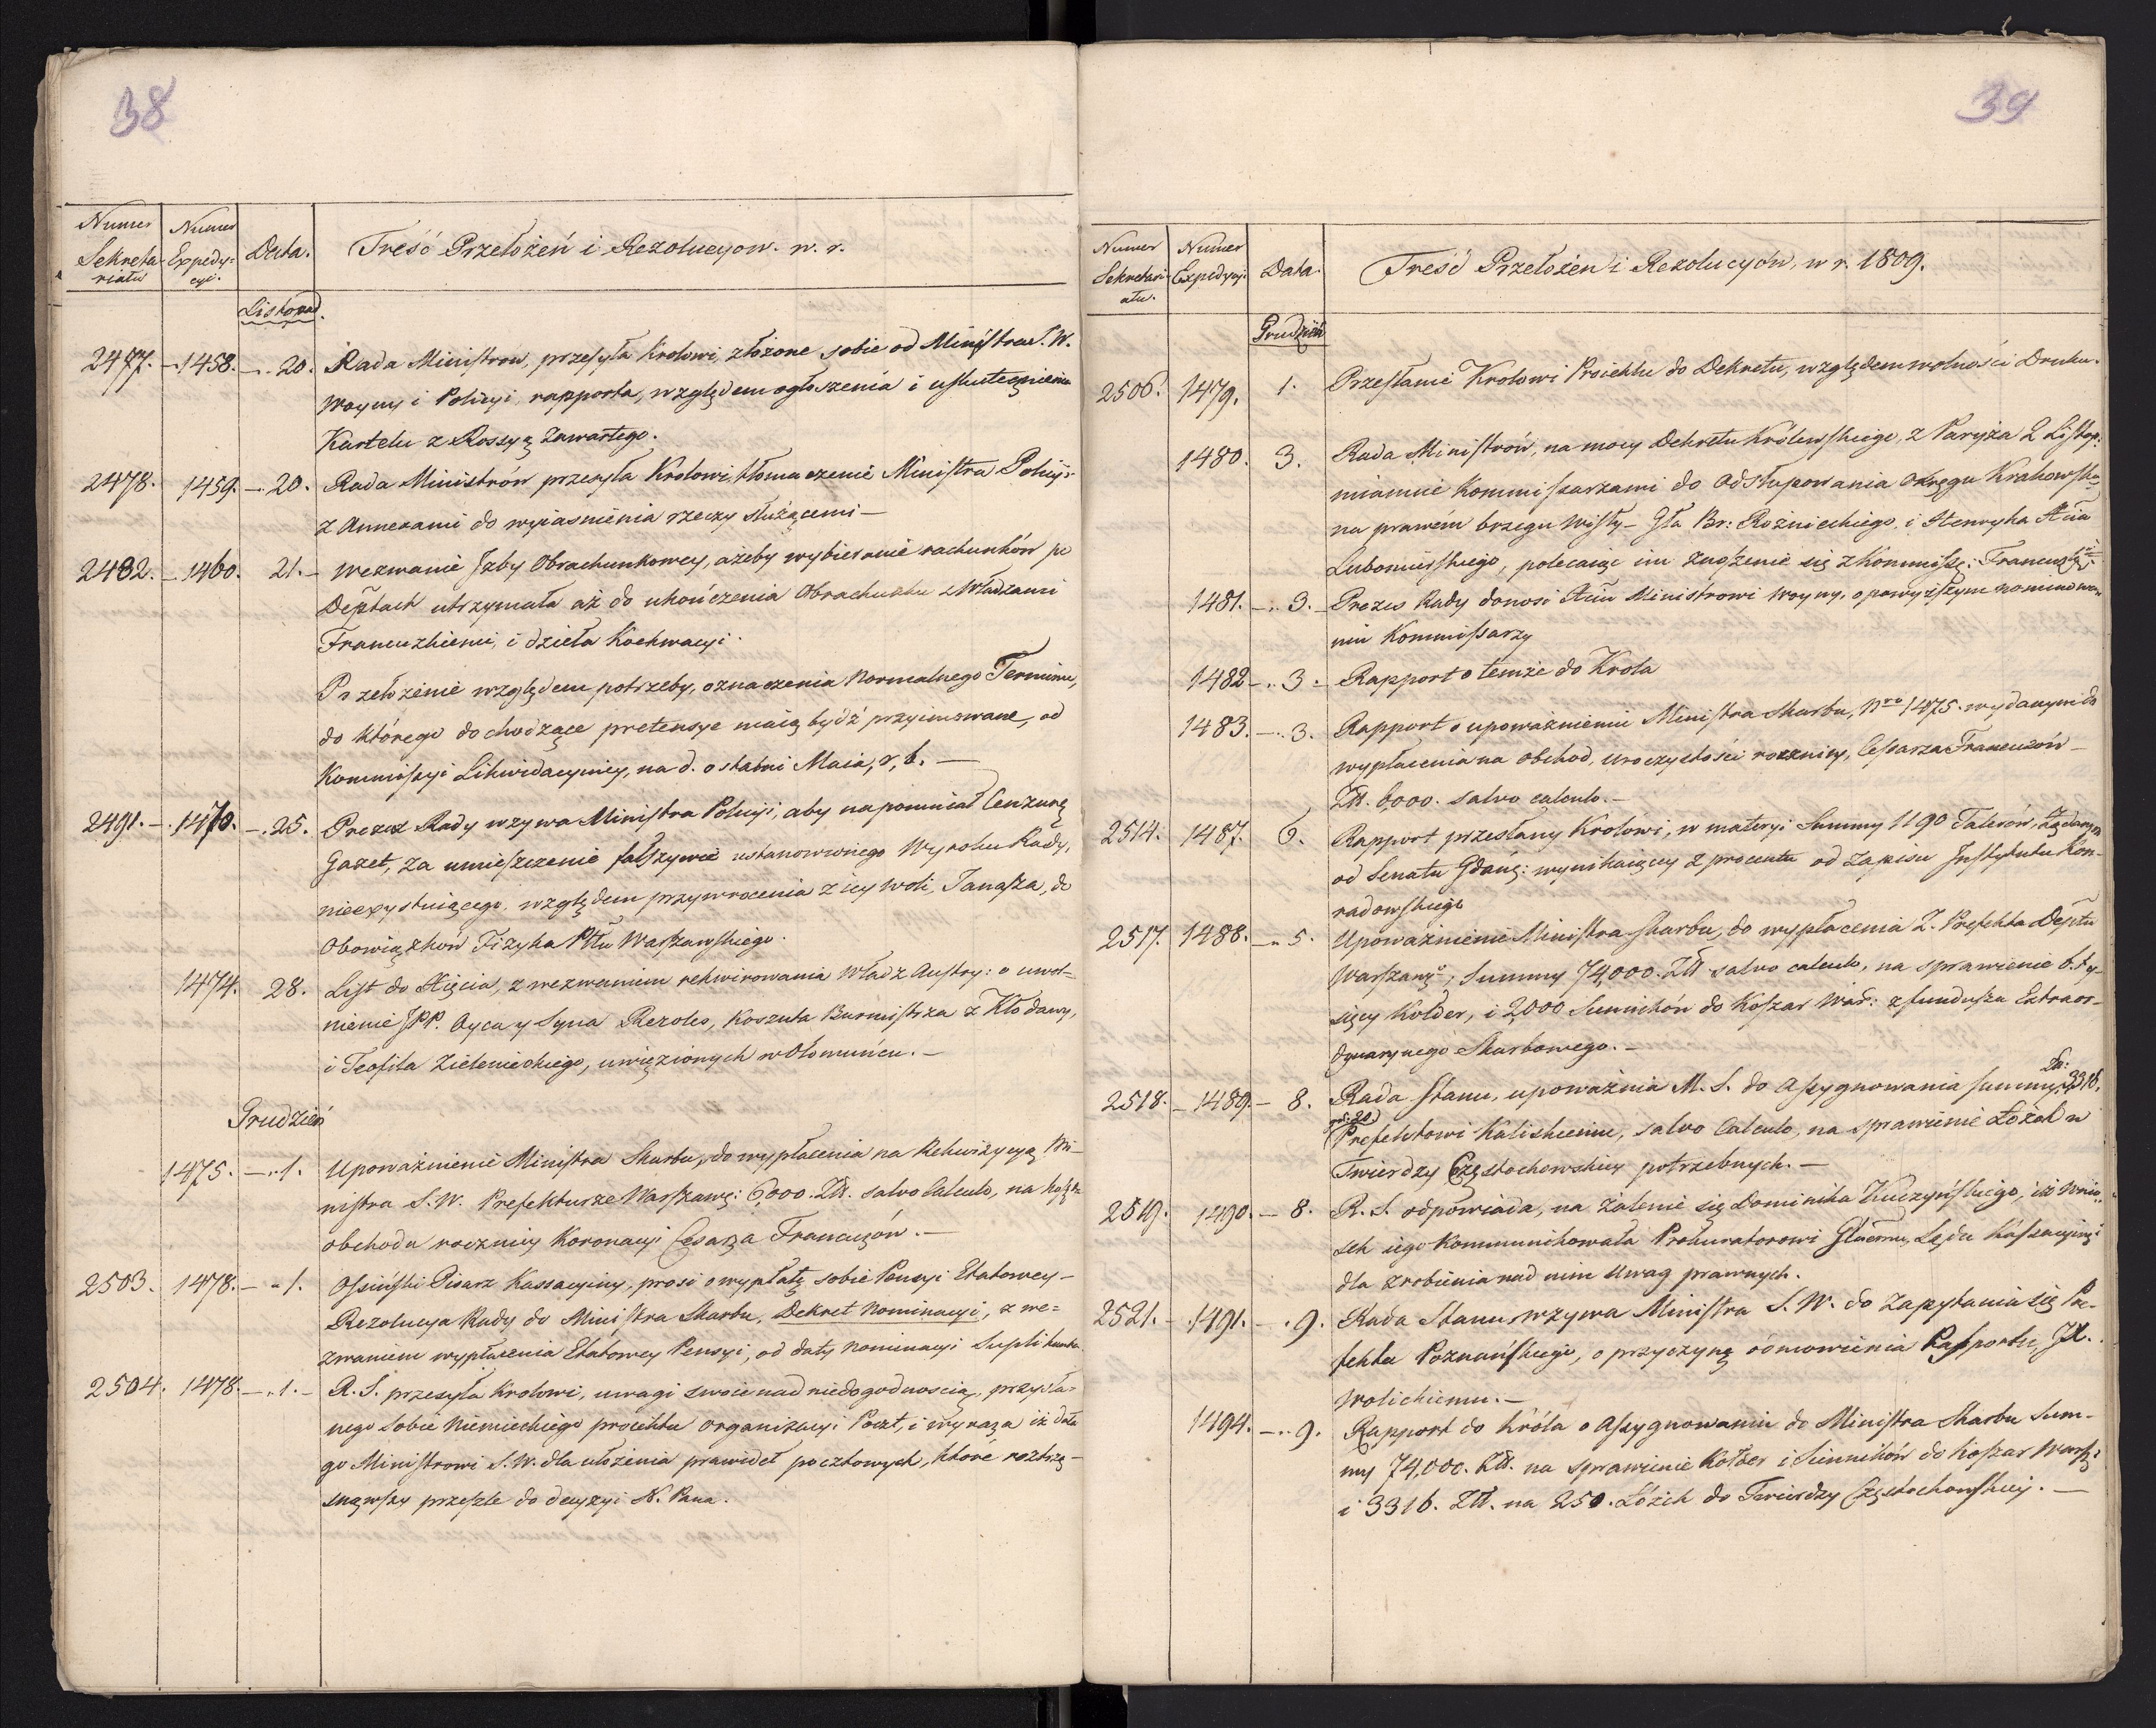 38
Numer Sekretariatus
Numer Expedycyi.
Data.
Treść Przełożeń i Rezolucyow. w. r.
Listopad.
2477. 1458. 20. Rada Ministrow, przesyła Krolowi złożone sobie od Ministra S. W.
Woyny i Policyi, rapporta, względem ogłoszenia i uskutecznienia
Kartelu z Rossyą zawartego.
2478. 1459. 20. Rada Ministrów przesyła Krolowi, tłomaczenie Ministra Policyi
z Annexami do wyiasnienia rzeczy służącemi —
2482. 1460. 21. Wezwanie Jzby Obrachunkowey, ażeby wybieranie rachunków po
Dep̃tach utrzymała aż do ukończenia Obrachunku z Władzami
Francuzkiemi, i dzieła Koekwacyi.
Przełożenie względem potrzeby, oznaczenia Normalnego Terminu,
do którego dochodzące pretensye maią bydź przyimowane, od
Kommissyi Likwidacyiney, na d. ostatni Maia, r, b. —
2491. 1470. 25. Prezes Rady wzywa Ministra Policyi, aby napomniał Cenzurę
Gazet, za umieszczenie fałszywie ustanowionego Wyroku Rady,
nieexystuiącego, względem przywrocenia z icy woli, Tanasza, do
Obowiązkow Fizyka Pttu Warszawskiego.
1474. 28. List do Xięcia, z wezwaniem rekwirowania Władz Austry: o uwol-
nienie JPP. Oyca y Syna Rezoles, Koszuta Burmistrza z Kłodawy,
i Teofila Zieleniechiego, uwięzionych w Ołomuńcu. —
Grudzień
1475. 1. Upoważnienie Ministra Skarbu, do wypłacenia na Rekwizycyą Mi-
nistra S. W. Prefekturze Warszawş: 6,000. Złł. salvo Calculo, na koszt
obchodu roczniey Koronacyi Cesarza Francuzów. —
2503. 1478. 1. Osiński Pisarz Kassacyiny, prosi o wypłatę sobie Pensyi Etatowey —
Rezolucya Rady do Ministra Skarbu, Dekret Nominacyi, z we=
zwaniem wypłacenia Etatowey Pensyi, od daty Nominacyi Suplikanta.
2504. 1478. 1. R. S. przesyła Krolowi, uwagi swoie nad niedogodnoscią, przysła=
nego Sobie Niemieckiego proiektu Organizacyi Poczt, i wyraża iż dała
go Ministrowi S. W. dla ułożenia prawideł pocztowych, które roztrzą-
snąwszy prześle do decyzyi N. Pana.
39
Numer Sekretariatu.
Numer Expedycyi.
Data.
Treść Przełożeń i Rezolucyów, w r. 1809.
Grudzień
2506. 1479. 1. Przesłanie Krolowi Proiektu do Dekretu, względem wolności Druku.
1480. 3. Rada Ministrów, na mocy Dekretu Królewskiego, z Paryża 2 Listop:
mianuie Kommissarzami do Odstąpowania Okręgu Krakowsk:
na prawém brzegu Wisły — Gła Br: Rożnieckiego, i Henryka Xcia
Lubomirskiego, polecaiąc im zniżenie się z Kommissę: Francuzki:
1481. 3. Prezes Rady donosi Xciu Ministrowi Woyny, o powyższym nominowa-
niu Kommissarzy
1482 3. Rapport o temże do Krola
1483. 3. Rapport o upoważnieniu Ministra Skarbu, Nro 1475. wydanym do
wypłacenia na obchod, uroczystości roczniey, Cesarza Francuzów —
Złł. 6000. salvo calculo. —
2514. 1487. 6. Rapport przesłany Krolowi, w materyi Summy 1190 Talerów, żądanych
od Senatu Gdańş: wynikaiącey z procentu od zapisu Instytutu Kon-
radowskiego
2517. 1488. 5. Upoważnienie Ministra Skarbu, do wypłacenia Z. Prefekta Dep̃tu
Warszawş; Summy 74,000. Złł salvo calculo, na sprawienie 6. ty-
sięcy Kołder, i 2,000 Sienników do Koszar War: z funduszu Extraor-
dynaryinego Skarbowego. —
2518. 1489. 8. Rada Stanu, upoważnia M. S. do Assygnowania summy Zł: 3316.
Prefektowi Kaliskiemu, salvo Calculo, na sprawienie Łóżek w
Twierdzy Częstochowskiey potrzebnych. —
2519. 1490. 8. R. S. odpowiada, na żalenie się Dominika Kuczyńskiego, iż wnio-
sek iego Kommunikowała Prokuratorowi Głłnemu, Sądu Kassacyinego
dla zrobienia nad nim Uwag prawnych.
2521. 1491. 9. Rada Stanu wzywa Ministra S. W. do Zapytania się Pre-
fekta Poznańskiego, o przyczynę odmowienia Passportu, JX.
Wolickiemu. —
1494. 9. Rapport do Króla o Assygnowaniu do Ministra Skarbu Sum-
my 74,000. Złł. na sprawienie Kołder i Sienników do Koszar Warsz:
i 3316. Złł. na 250. Łóżek do Twierdzy Częstochowskiey. —